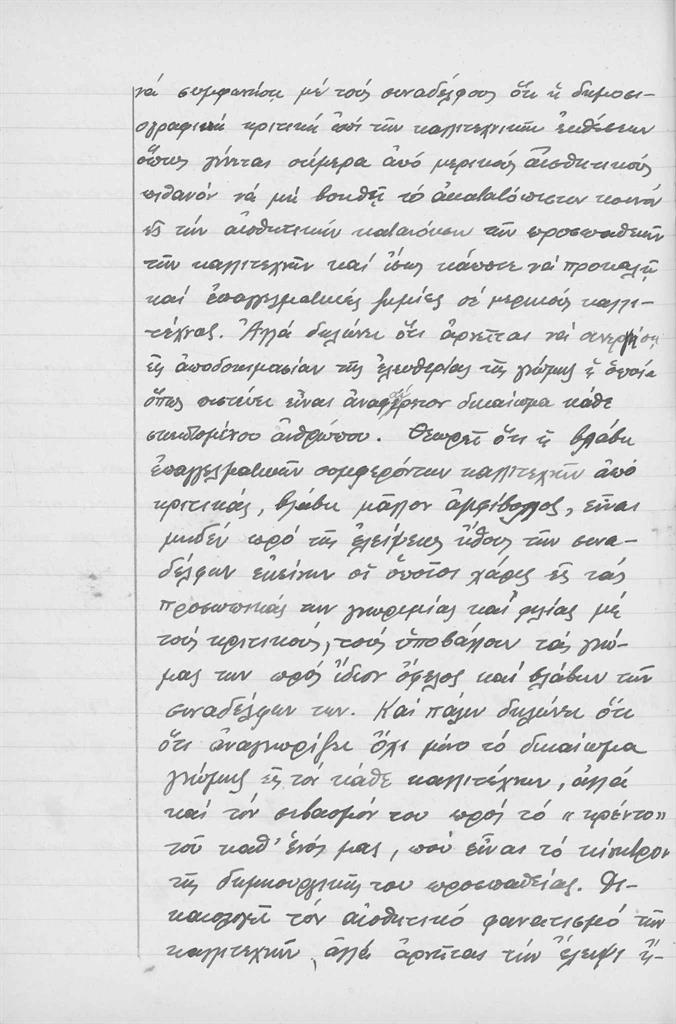 νά συμφωνήση μέ τούς συναδέλφους ὅτι ἡ δημοσι-
ογραφική κριτική ἐπί τῶν καλλιτεχνικῶν ἐκθέσεων
ὅπως γίνεται σήμερα ἀπό μερικούς αἰσθητικούς
πιθανόν νά μή βοηθῇ τό ἀκατατόπιστον κοινόν
εἰς τήν αἰσθητικήν κατανόησιν τῶν προσπαθειῶν
τῶν καλλιτεχνῶν καί ἴσως κάποτε νά προκαλῇ
καί ἐπαγγελματικές ζημίες σέ μερικούς καλλι-
τέχνας. Ἀλλά δηλώνει ὅτι ἀρνεῖται νά συνεργήση
εἰς ἀποδοκιμασίαν τῆς ἐλευθερίας τῆς γνώμης ἡ ὁποία
ὅπως πιστεύει εἶναι ἀναφαίρετον δικαίωμα κάθε
σκεπτομένου ἀνθρώπου. Θεωρεῖ ὅτι ἡ βλάβη
ἐπαγγελματικῶν συμφερόντων καλλιτεχνῶν ἀπό
κριτικάς, βλάβη μᾶλλον ἀμφίβολος, εἶναι
μηδέν πρό τῆς ἐλείψεως ἤθους τῶν συνα-
δέλφων ἐκείνων οἱ ὁποῖοι χάρις εἰς τάς
προσωπικάς των γνωριμίας καί φιλίας μέ
τούς κριτικούς, τούς ὑποβάλλουν τάς γνώ-
μας των πρός ἴδιον ὄφελος καί βλάβην τῶν
συναδέλφων των. Καί πάλιν δηλώνει ὅτι
ὅτι ἀναγνωρίζει ὄχι μόνο τό δικαίωμα
γνώμης εἰς τόν κάθε καλλιτέχνην, ἀλλά
καί τόν σεβασμόν του πρός τό «κρέντο»
τοῦ καθ' ἑνός μας, πού εἶναι τό κίνητρον
τῆς δημιουργικῆς του προσπαθείας. Δι-
καιολογεῖ τόν αἰσθητικό φανατισμό τῶν
καλλιτεχνῶν, ἀλλά ἀρνεῖται τήν ἔλειψι ἤ-